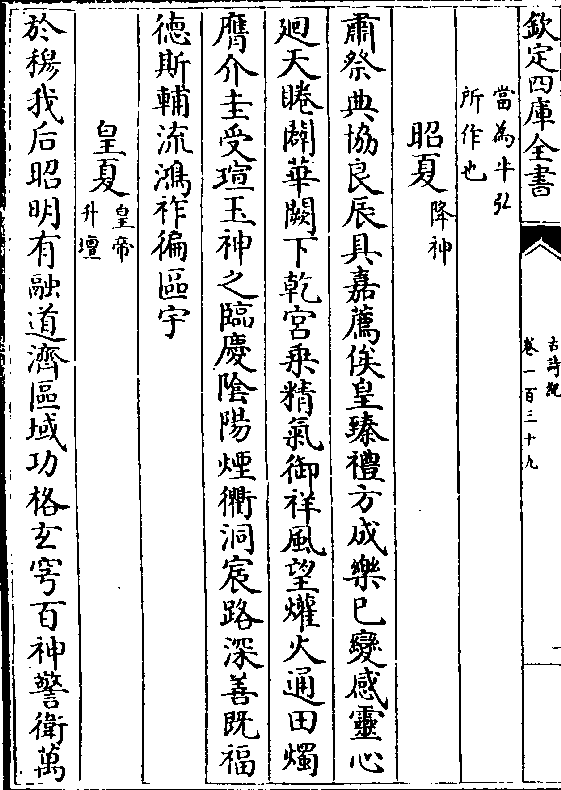 欽定四庫全書
古詩紀
卷一百三十九
當為牛弘
所作也
昭夏降神
肅祭典協良辰具嘉薦俟皇臻禮方成樂已變感靈心
廻天睠闢華闕下乾宮乘精氣御祥風望爟火通田燭
膺介圭受瑄玉神之臨慶陰陽煙衢洞宸路深善既福
德斯輔流鴻祚徧區宇
皇夏皇帝
升壇
於穆我后昭明有融道濟區域功格玄穹百神警衛萬